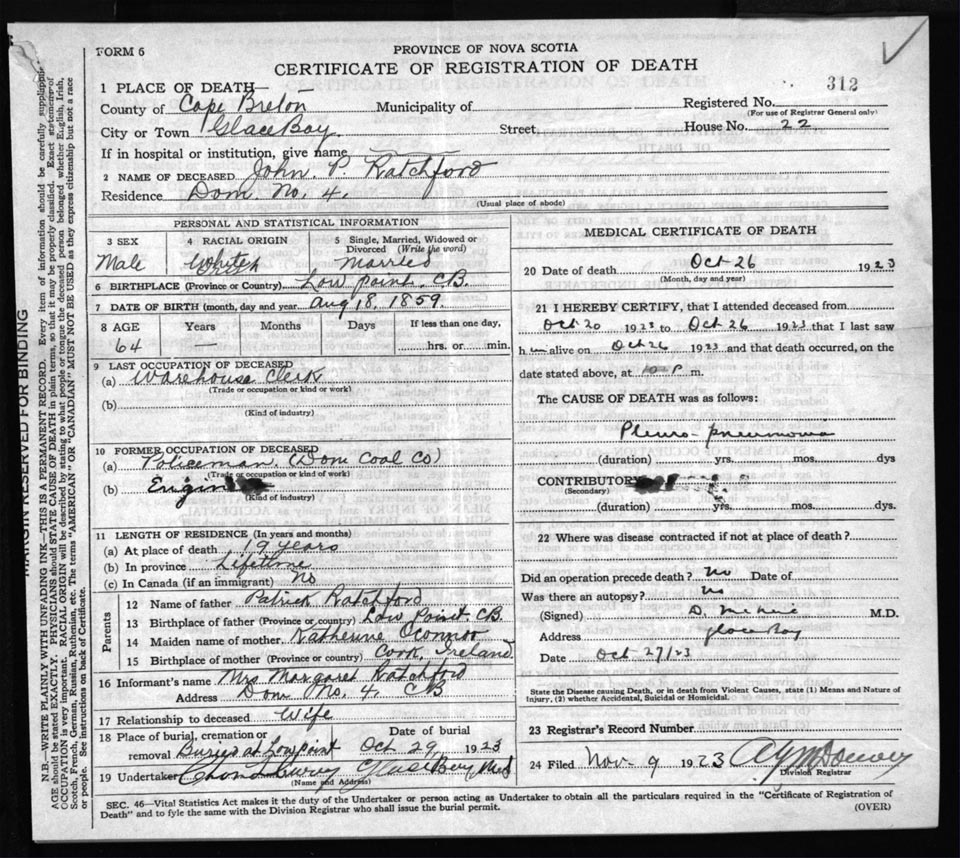 FORM 6
PROVINCE OF NOVA SCOTIA
CERTIFICATE OF REGISTRATION OF DEATH
312
1 PLACE OF DEATH—
County of Cape Breton Municipality of Registered No.
(For use of Registrar General only)
City or Town Glace Bay Street House No. 22
If in hospital or institution, give name
2 NAME OF DECEASED John P. Ratchford
Residence Dom. No. 4.
(Usual place of abode)
PERSONAL AND STATISTICAL INFORMATION
3 SEX 4 RACIAL ORIGIN 5 Single, Married, Widowed or Divorced (Write the word)
Male White Married
6 BIRTHPLACE (Province or Country) Low point. C.B.
7 DATE OF BIRTH (month, day and year Aug 18, 1859.
8 AGE Years Months Days If less than one day,
64 — hrs. or min.
9 LAST OCCUPATION OF DECEASED
(a) Warehouse Clerk
(Trade or occupation or kind or work)
(b)
(Kind of industry)
10 FORMER OCCUPATION OF DECEASED
(a) Policeman. (Dom Coal Co)
(Trade or occupation or kind of work)
(b) Engin
(Kind of industry)
11 LENGTH OF RESIDENCE (In years and months)
(a) At place of death 19 years
(b) In province Lifetime
(c) In Canada (if an immigrant) No
Parents
12 Name of father Patrick Ratchford
13 Birthplace of father (Province or country) Low Point. C.B.
14 Maiden name of mother Katherine Oconnor
15 Birthplace of mother (Province or country) Cork, Ireland
16 Informant's name Mrs Margaret Ratchford
Address Dom No. 4. CB
17 Relationship to deceased Wife
18 Place of burial, cremation or removal Buried at Lowpoint Date of burial Oct 29 1923
19 Undertaker Glace Bay
(Name and Address)
MEDICAL CERTIFICATE OF DEATH
20 Date of death Oct 26 1923
(Month, day and year)
21 I HEREBY CERTIFY, that I attended deceased from
Oct 20 1923 to Oct 26 1923 that I last saw
him alive on Oct 26 1923 and that death occurred, on
date stated above, at 10 P m.
The CAUSE OF DEATH was as follows:
Pleuro-pneumonia
(duration) yrs. mos. dys
CONTRIBUTORY
(Secondary)
(duration) yrs. mos. dys.
22 Where was disease contracted if not at place of death?
Did an operation precede death? No Date of
Was there an autopsy? No
(Signed) M.D.
Address Glace Bay
Date Oct 27/23
State the Disease causing Death, or in death from Violent Causes, state (1) Means and Nature of Injury, (2) whether Accidental, Suicidal or Homicidal.
23 Registrar's Record Number
24 Filed Nov 9 1923
Division Registrar
SEC. 46—Vital Statistics Act makes it the duty of the Undertaker or person acting as Undertaker to obtain all the particulars required in the "Certificate of Registration of
Death" and to fyle the same with the Division Registrar who shall issue the burial permit. (OVER)
MARGIN RESERVED FOR BINDING
N.B.—WRITE PLAINLY WITH UNFADING INK—THIS IS A PERMANENT RECORD. Every item of information should be carefully supplied.
AGE should be stated EXACTLY. PHYSICIANS should STATE CAUSE OF DEATH in plain terms, so that it may be properly classified. Exact statement of
OCCUPATION is very important. RACIAL ORIGIN will be described by stating to what people or tongue the deceased person belonged whether English, Irish,
Scotch, French, German, Russian, Ruthenian, etc. The terms "AMERICAN" OR "CANADIAN" MUST NOT BE USED as they express citizenship but not a race
or people. See instructions on back of Certificate.